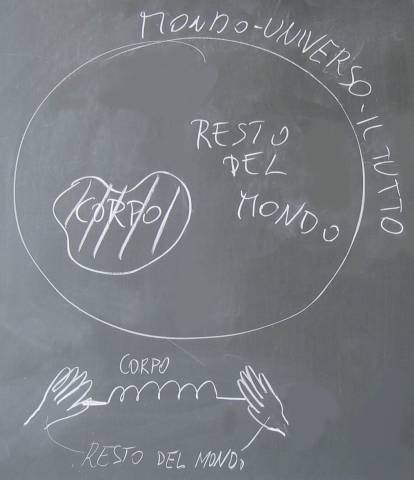 MONDO-UNIVERSO-IL TUTTO
RESTO
DEL
MONDO
CORPO
CORPO
RESTO DEL MONDO